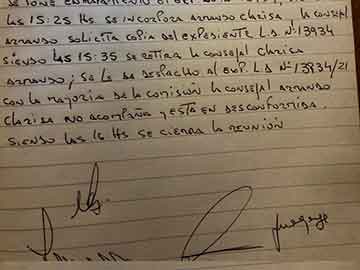 se pone
las 15:25 Hs. se incorpora Arnando Clarisa, la consejal
Arnando solicita copia del expediente L.D Nº 13934
siendo las 15:35 se retira la consejal Clarisa
Arnando; se le da despacho al exp. L.D Nº 13834/21
con la mayoria de la comisión la consejal Arnando
Clarisa no acompaña y está en desconformidad.
siendo las 16 Hs se cierra la reunión